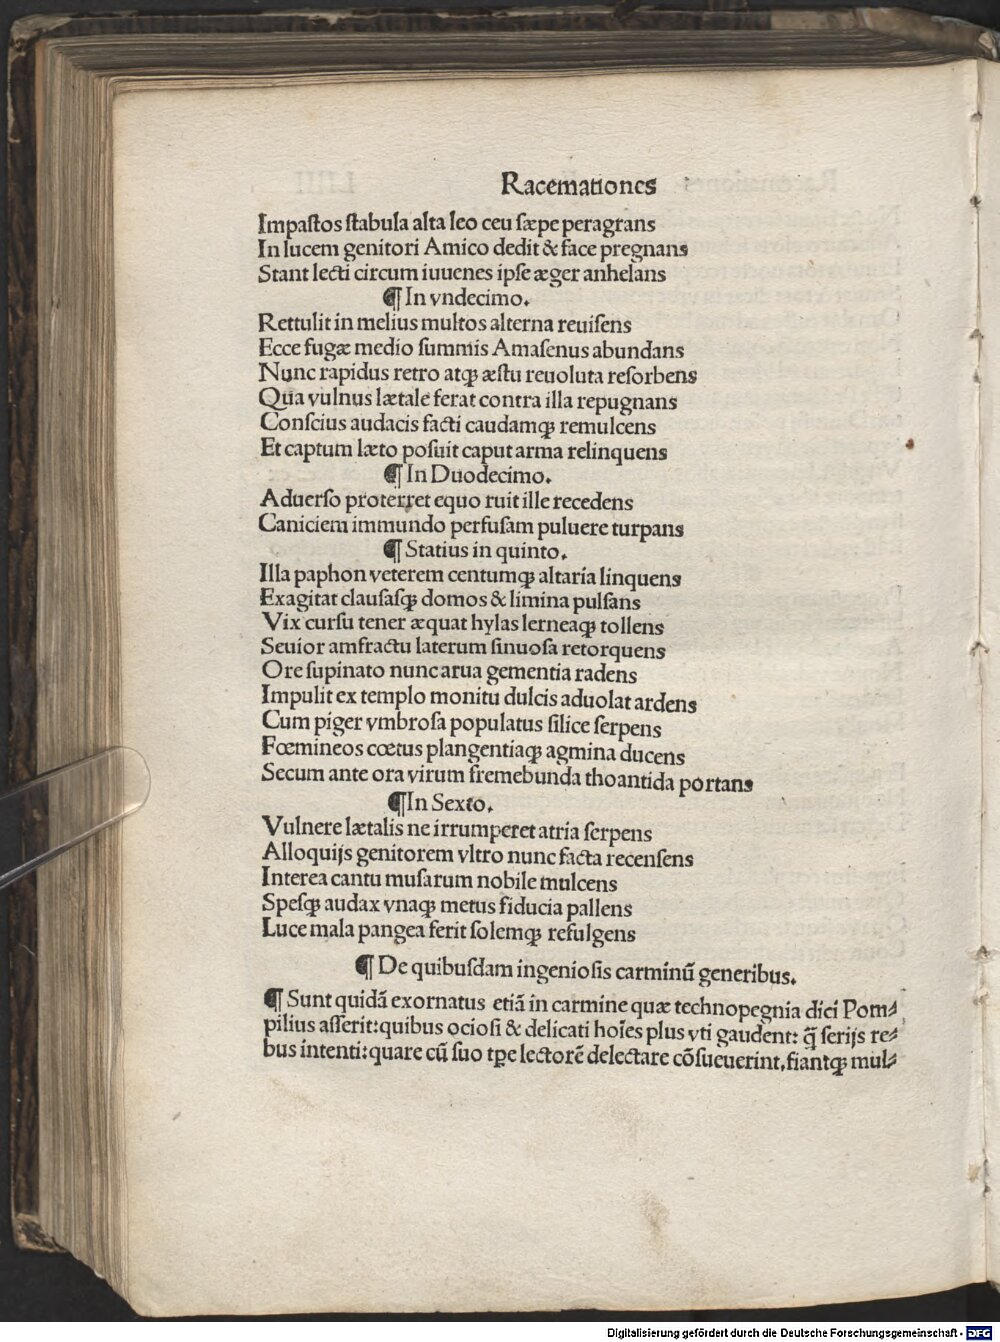 Racemationes
Impaſtos ſtabula alta leo ceu ſæpe peragrans
In lucem genitori Amico dedit & face pregnans
Stant lecti circum iuuenes ipſe æger anhelans
¶ In vndecimo.
Rettulit in melius multos alterna reuiſens
Ecce fugæ medio ſummis Amaſenus abundans
Nunc rapidus retro atqꝫ æſtu reuoluta reſorbens
Qua vulnus lætale ferat contra illa repugnans
Conſcius audacis facti caudamqꝫ remulcens
Et captum læto poſuit caput arma relinquens
¶ In Duodecimo.
Aduerſo proterret equo ruit ille recedens
Caniciem immundo perfuſam puluere turpans
¶ Statius in quinto.
Illa paphon veterem centumqꝫ altaria linquens
Exagitat clauſaſqꝫ domos & limina pulſans
Vix curſu tener æquat hylas lerneaqꝫ tollens
Seuior amfractu laterum ſinuoſa retorquens
Ore ſupinato nunc arua gementia radens
Impulit ex templo monitu dulcis aduolat ardens
Cum piger vmbroſa populatus ſilice ſerpens
Fœmineos cœtus plangentiaqꝫ agmina ducens
Secum ante ora virum fremebunda thoantida portans
¶ In Sexto.
Vulnere lætalis ne irrumperet atria ſerpens
Alloquijs genitorem vltro nunc facta recenſens
Interea cantu muſarum nobile mulcens
Speſqꝫ audax vnaqꝫ metus fiducia pallens
Luce mala pangea ferit ſolemqꝫ refulgens
¶ De quibuſdam ingenioſis carminū generibus.
¶ Sunt quidā exornatus etiā in carmine quæ technopegnia dici Pom⸗
pilius aſſerit: quibus ocioſi & delicati hoīes plus vti gaudent: q̄ ſerijs re⸗
bus intenti: quare cū ſuo tꝑe lectorē delectare cōſueuerint, fiantqꝫ mul⸗
Digitalisierung gefördert durch die Deutsche Forschungsgemeinschaft - DFG